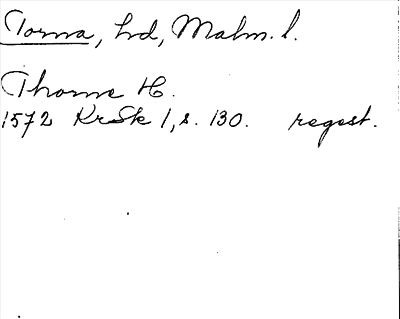 Torna, hd, Malm. l.
Thorne H.
1572 KrSk 1, s. 130. regest.